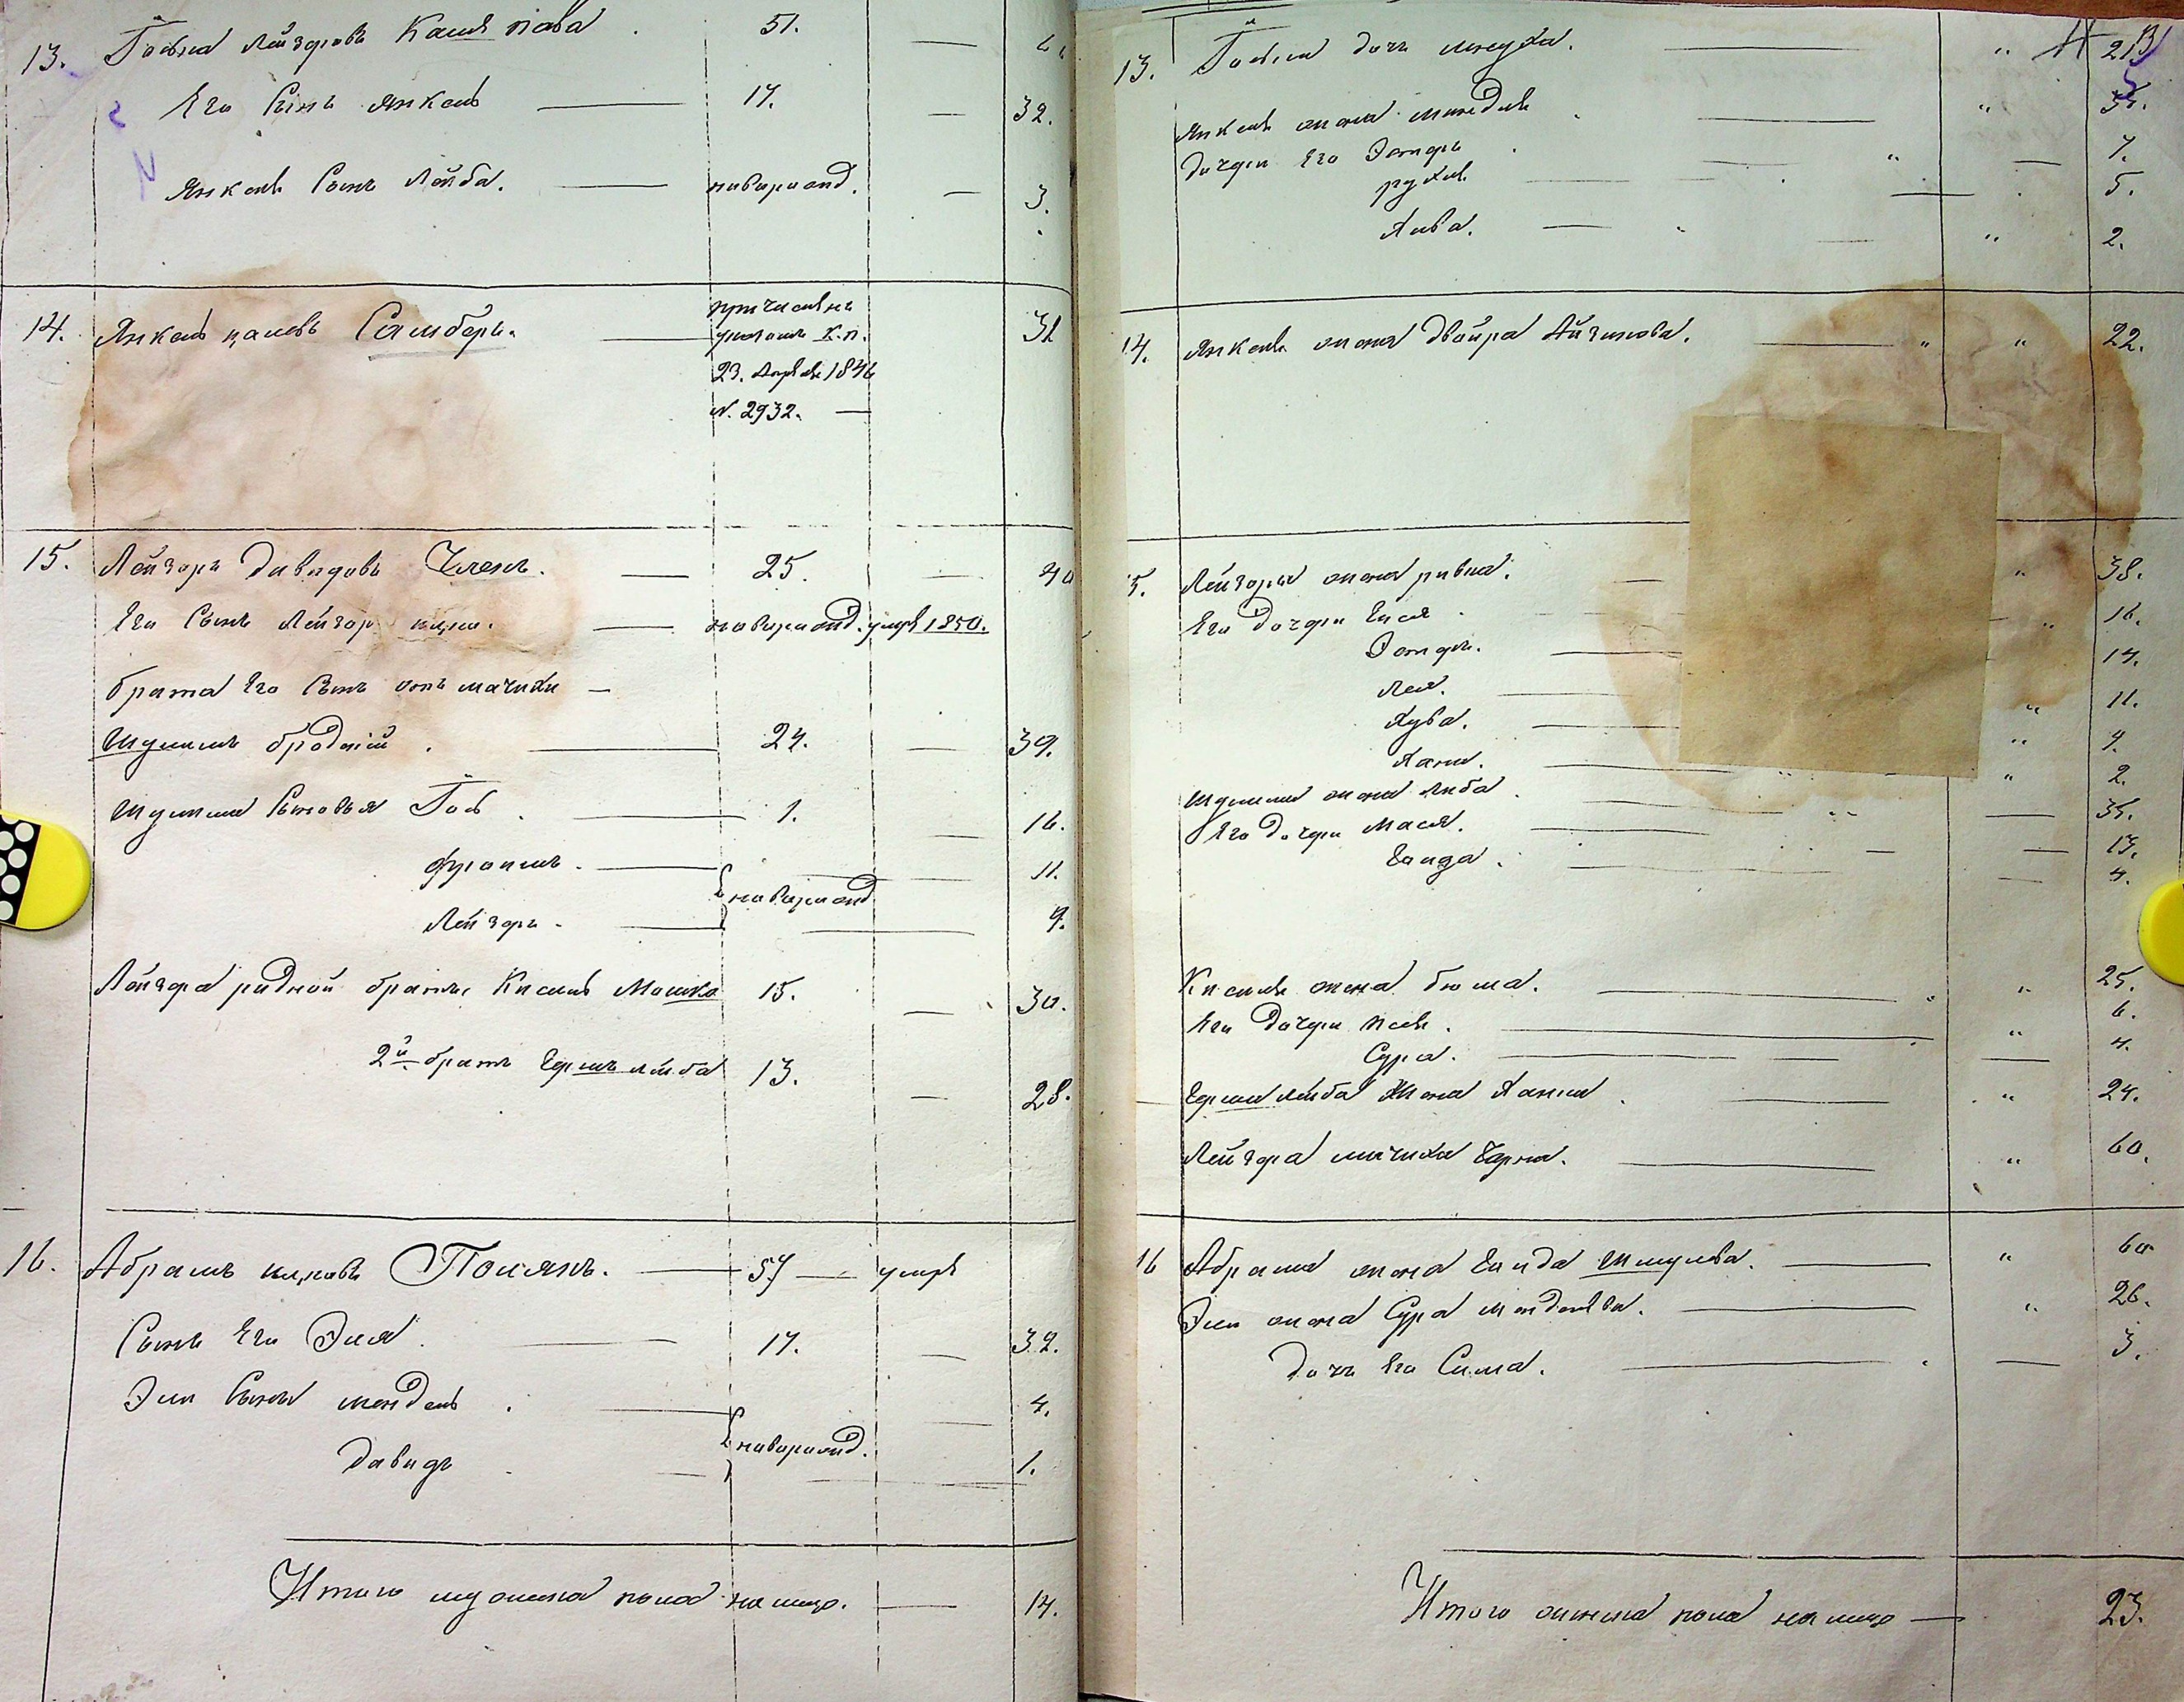 13. Іосьна Лейзоровъ 51.
Его Сынъ Янкель 17. 32.
Янкеля Сынъ Лейба. новорожд. 3.
14. Янкель Самберъ. причисленъ 31
указомъ К.п.
23. Апреля 1846
N. 2932.
15. Лейзоръ Давидовъ Членъ. 25. 40
Его Сынъ Лейзоръ новорожд. умре 1850.
брата Его Сынъ отъ мачихи
Шулимъ бродкій 24. 39.
Шулима Сыновья Іось 1. 16.
Фроимъ. 11.
новорожд.
Лейзоръ 9.
Лейзора родной братъ Кисель Мошко 15. 30.
2й братъ Гершъ лейба 13. 28.
16. Абрамъ Полякъ. 57 умре
Сынъ Его Эля 17. 32.
Эли Сыны мендель 4.
новорожд.
Давидъ 1.
Итого мужеска пола на лицо. 14.
13. Іосьна дочь 21
Янкеля жена миндля 35.
Дочери Его Эстеръ 7.
рухля 5.
Хива. 2.
14. Янкеля жена Двойра Айзикова. 22.
15. Лейзора жена ривка. 38.
Его Дочери Енся 16.
Эстеръ. 14.
Лея. 11.
Хува. 9.
Ханя. 2.
Шулима жена Либа 35.
Его Дочери Мася. 13.
Гинда 4.
Киселя жена бюма. 25.
Его Дочери 6.
Сура. 4.
Герша лейба Жена Ханна 24.
Лейзора мачиха Черна. 60.
16 Абрама жена Гинда Шмулева. 60
Эли жена Сура менделева. 26.
Дочь Его Сима. 3.
Итого женска пола на лицо 23.